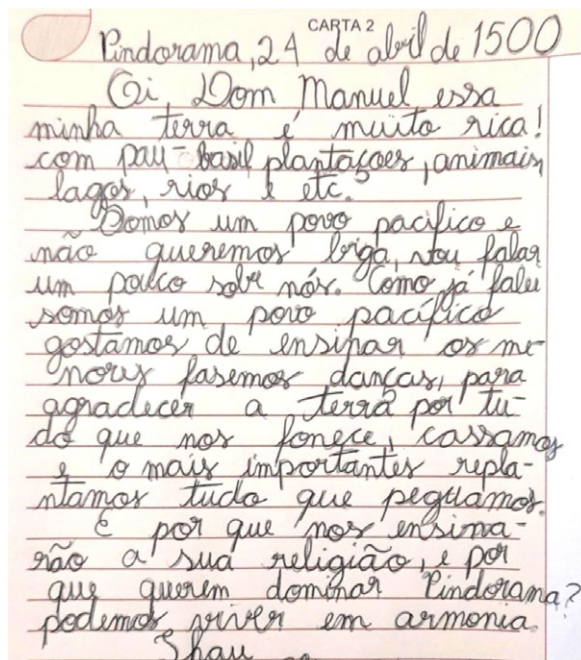 CARTA 2
Pindorama, 24 de abril de 1500
Oi Dom Manuel, essa
minha terra é muito rica!
com pau-basil plantaçoes, animais,
lagos, rios e etc.
Somos um povo pacífico e
não queremos briga, vou falar
um pouco sobre nós. Como já falei
somos um povo pacífico
gostamos de ensinar os me-
nores fasemos danças, para
agradecer a terra por tu-
do que nos fonece, cassamos
e o mais importantes repla-
ntamos tudo que peguamos.
E por que nos ensina-
rão a sua religião, e por
que querem dominar Pindorama?
podemos viver em armonia.
Thau